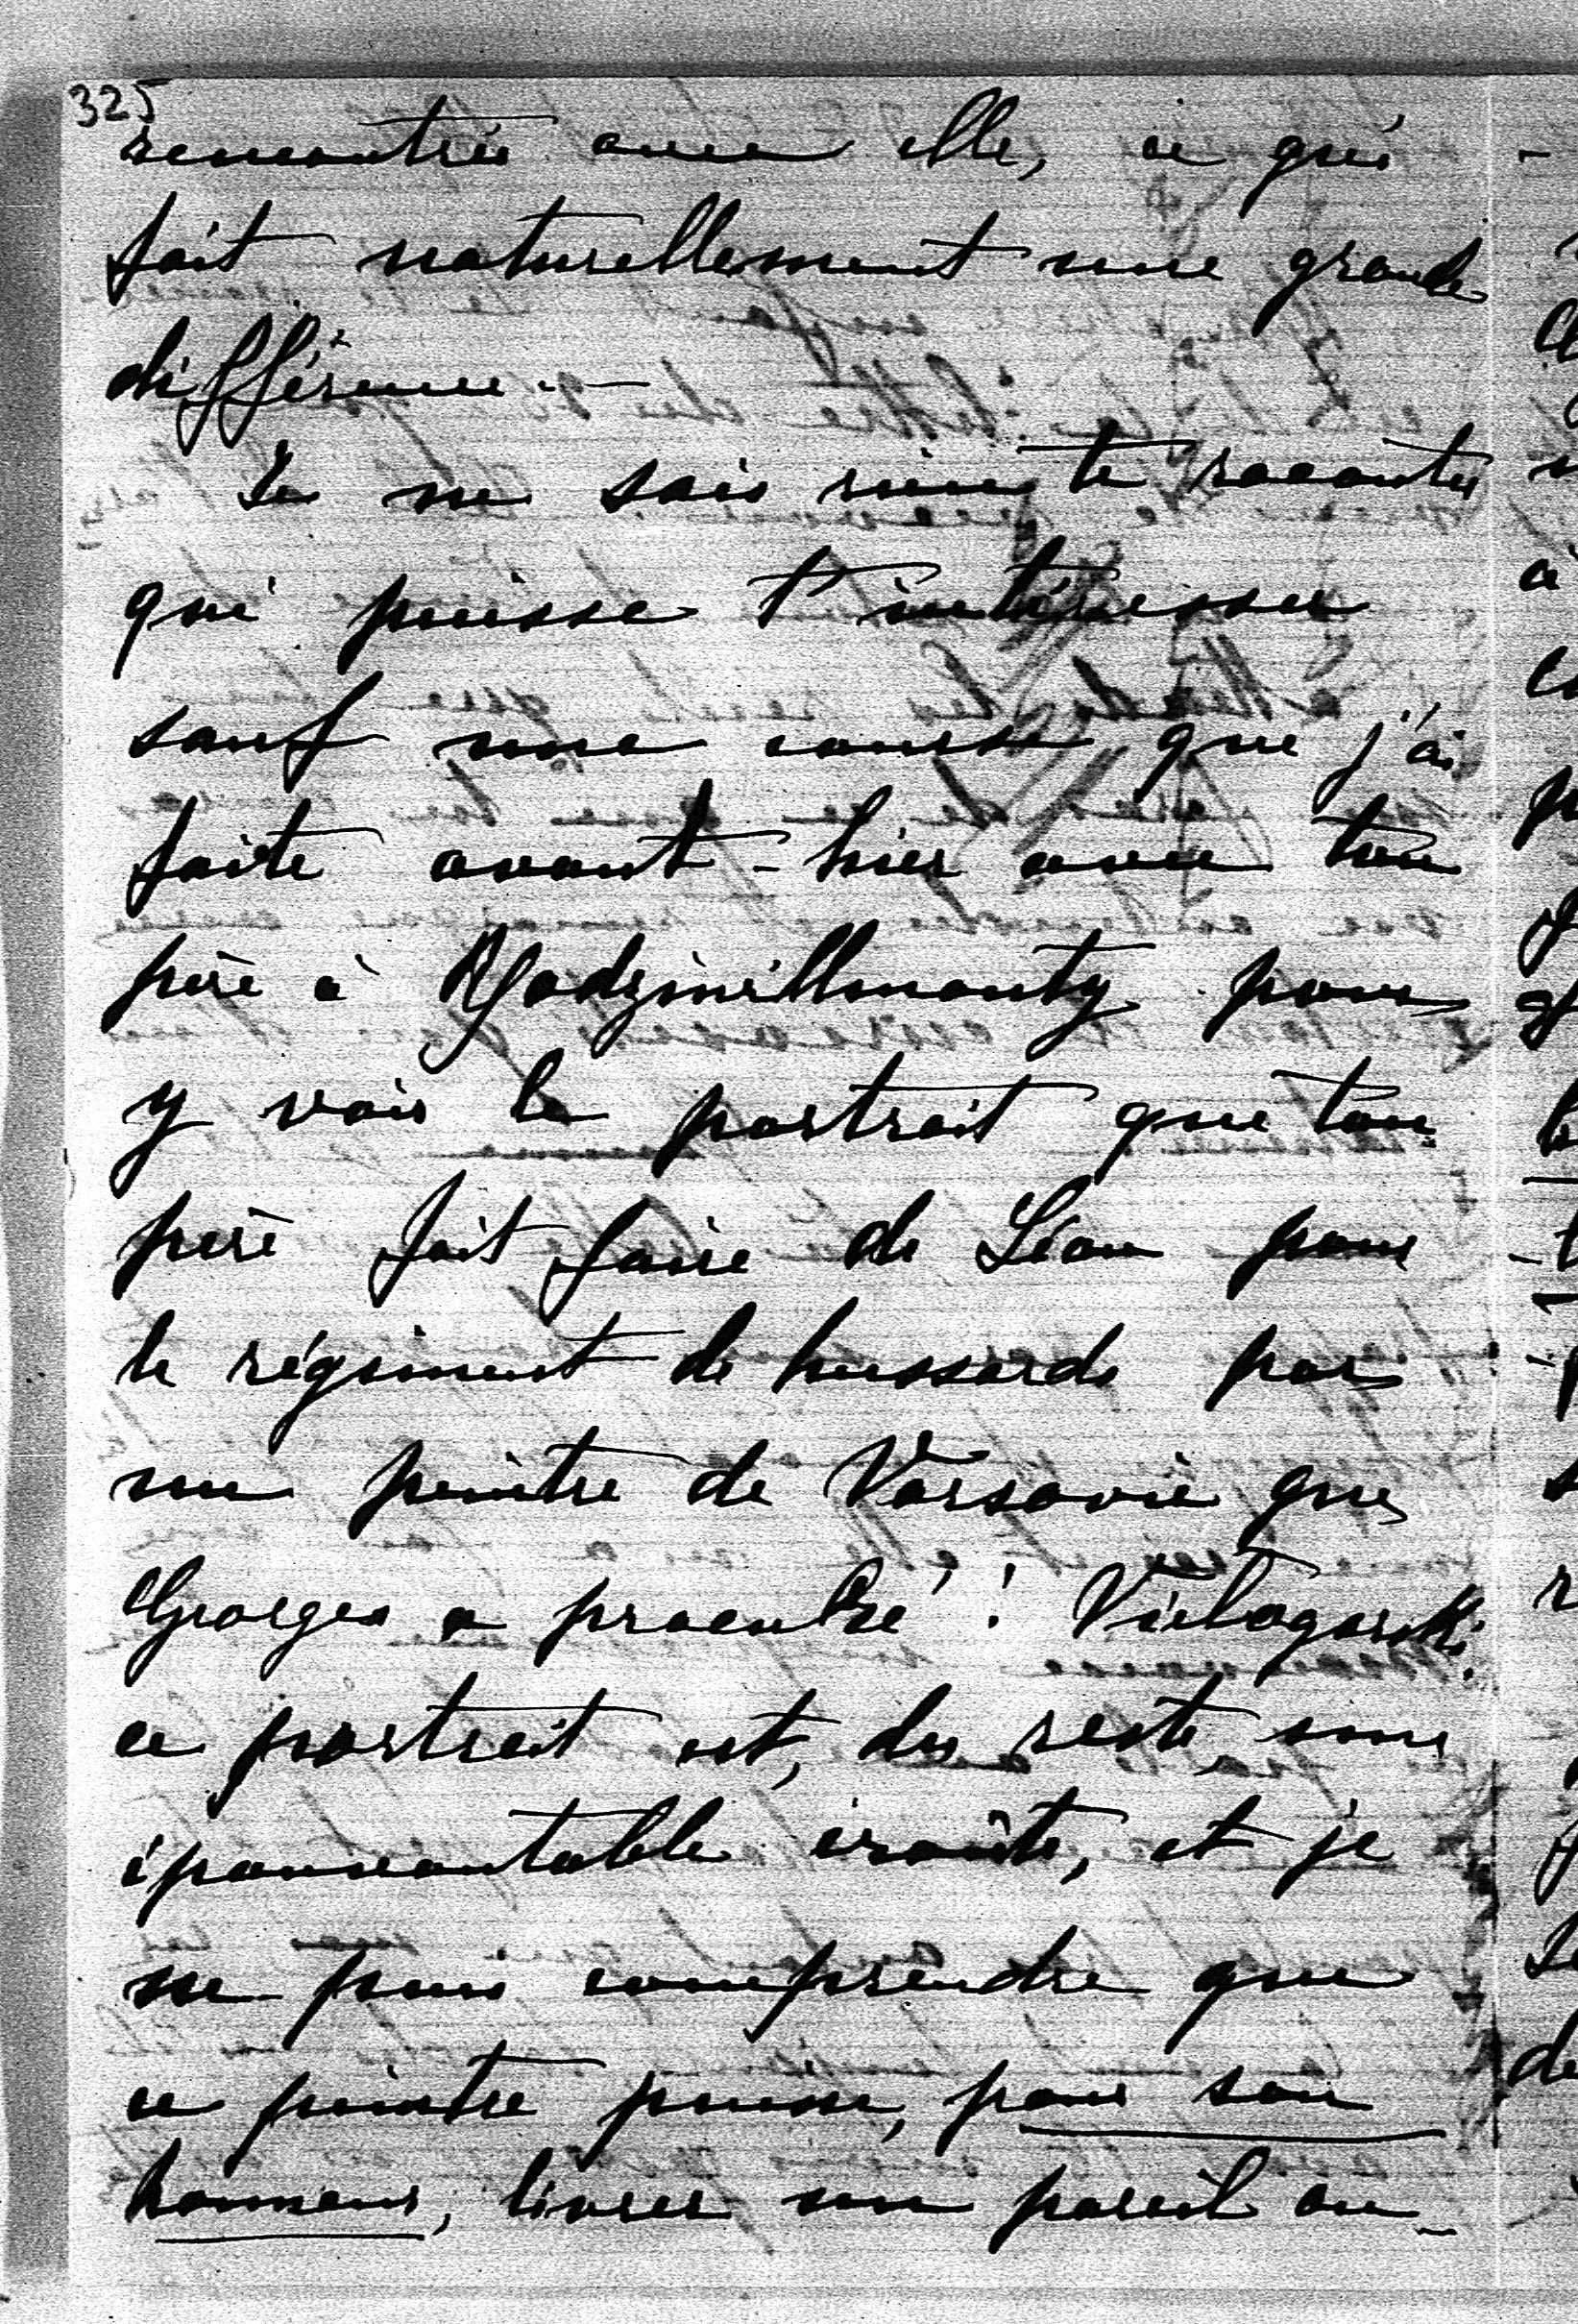 325
rencontrée avec elle, ce qui
fait naturellement une grande
différence. —
Je ne sais rien te raconter
qui puisse t'intéresser
sauf une course que j'ai
faite avant-hier avec ton
père à Radziwillmonty pour
y voir le portrait que ton
père fait faire de Léon pour
le régiment de hussards par
un peintre de Varsovie que
Georges a procuré! Vielogorski.
ce portrait est, du reste, une
épouvantable croûte, et je
ne puis comprendre que
ce peintre puisse, pour son
honneur, livrer un pareil ou-